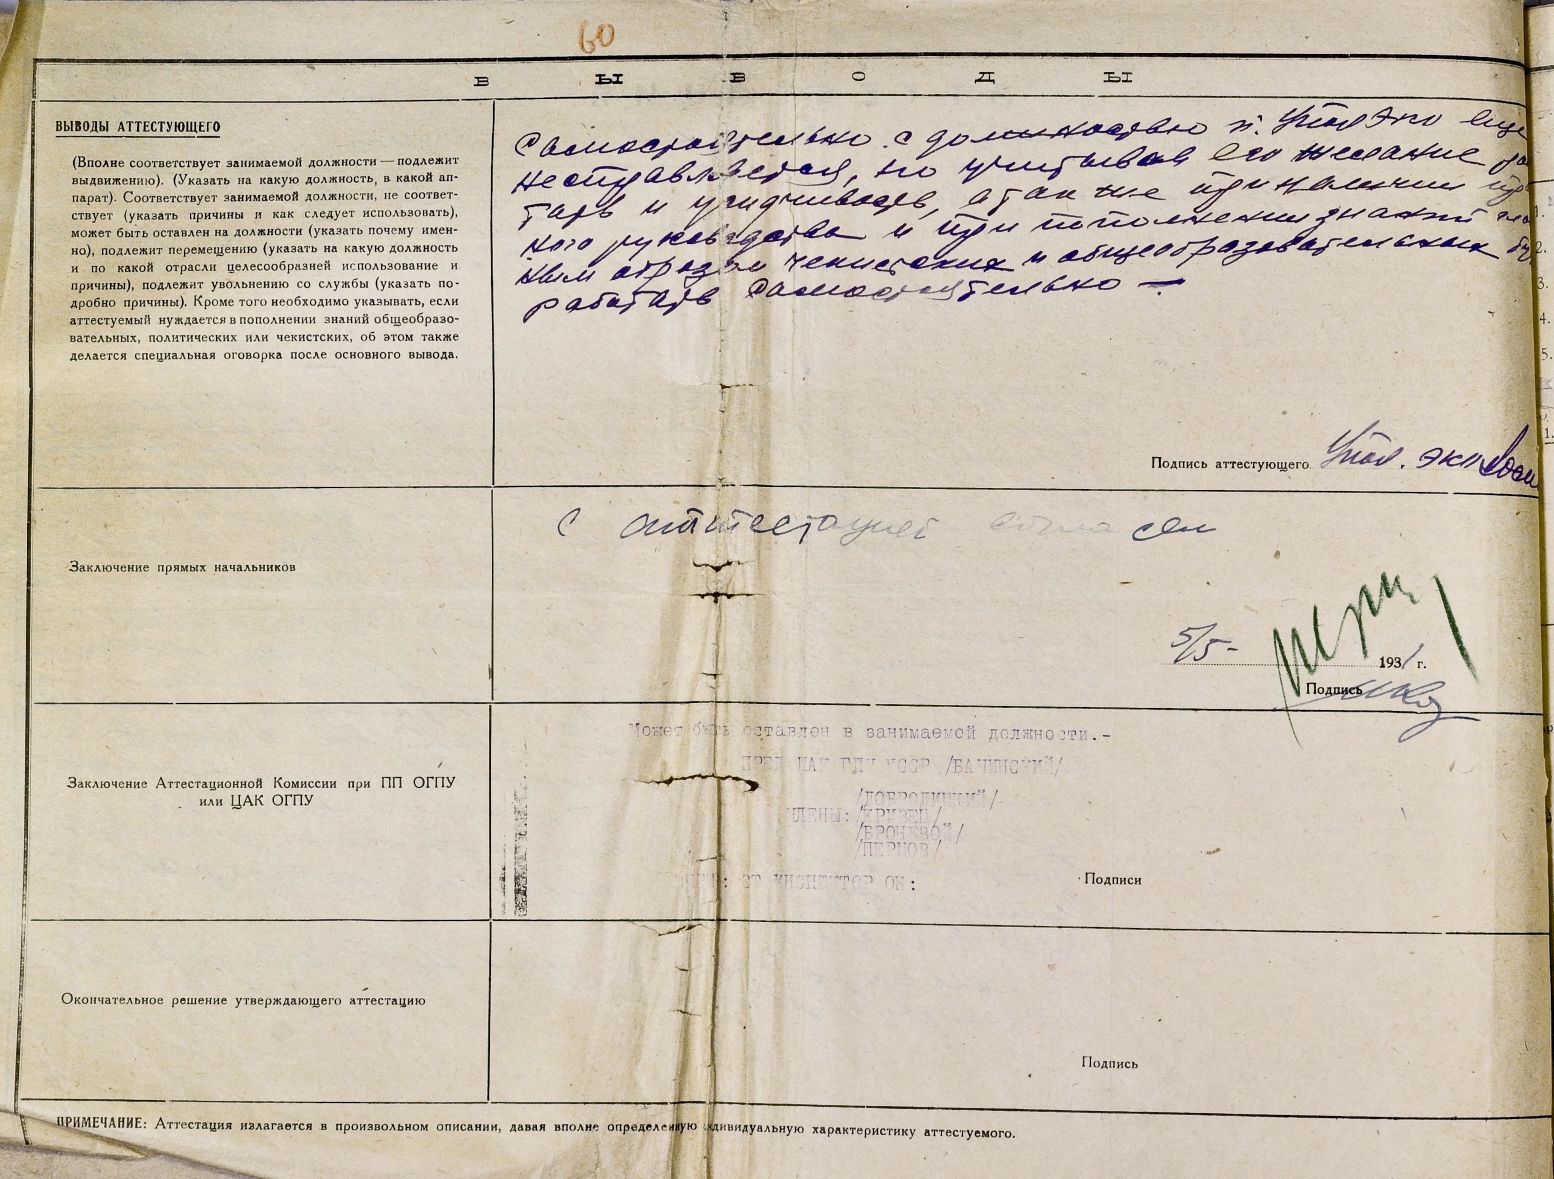 60
ВЫВОДЫ
ВЫВОДЫ АТТЕСТУЮЩЕГО
(Вполне соответствует занимаемой должности — подлежит
выдвижению). (Указать на какую должность, в какой ап-
парат). Соответствует занимаемой должности, не соответ-
ствует (указать причины и как следует использовать),
может быть оставлен на должности (указать почему имен-
но), подлежит перемещению (указать на какую должность
и по какой отрасли целесообразней использование и
причины), подлежит увольнению со службы (указать по-
дробно причины). Кроме того необходимо указывать, если
аттестуемый нуждается в пополнении знаний общеобразо-
вательных, политических или чекистских, об этом также
делается специальная оговорка после основного вывода.
Самостоятельно с должностью п. Упол ЭКО еще
несправляется, но учитывая его желание
тать и усидчивость, а так же при наличии
ного руководства и при пополнении знаний
ным образом чекистских и общеобразовательных
работать самостоятельно —
Подпись аттестующего Упол. ЭКО
Заключение прямых начальников
С аттестацией согласен
5/5- 1931 г.
Подпись
Заключение Аттестационной Комиссии при ПП ОГПУ
или ЦАК ОГПУ
Может быть оставлен в занимаемой должности.-
ПРЕД ЦАК ГПУ УССР /БАЧИНСКИЙ/
/ДОБРОДИЦКИЙ/
ЧЛЕНЫ: /КРИВЕЦ/
/БРОНЕВОЙ/
/ПЕРЦОВ/
СТ ИНСПЕКТОР ОК:
Подписи
Окончательное решение утверждающего аттестацию
Подпись
ПРИМЕЧАНИЕ: Аттестация излагается в произвольном описании, давая вполне определенную индивидуальную характеристику аттестуемого.